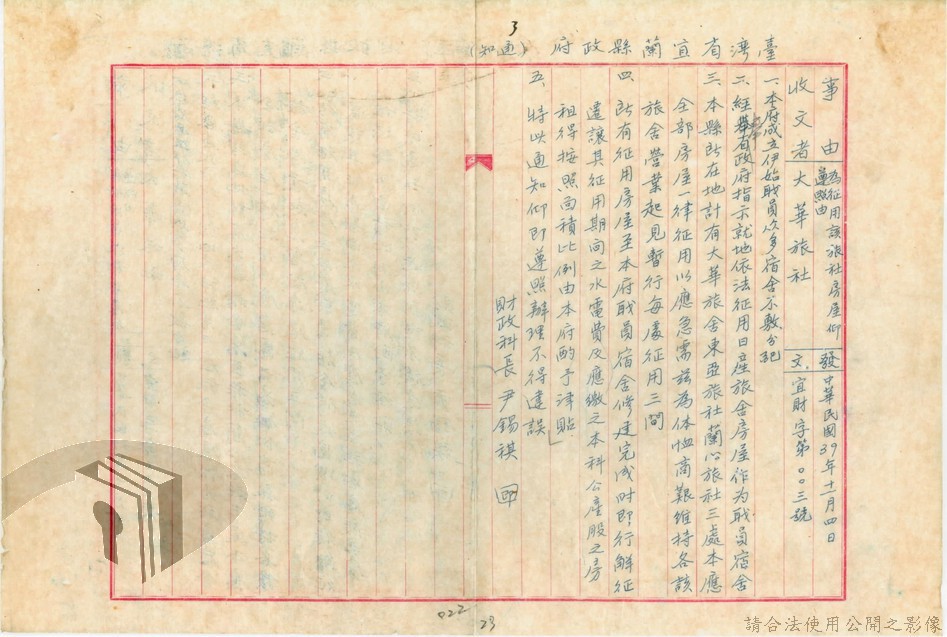 3
臺灣省宜蘭縣政府(通知)
事由
為征用該旅社房屋仰
遵照由
收文者 大華旅社
發文
中華民國39年十一月四日
宜財字第○○三號
一、本府成立伊始職員众多宿舍不敷分配
二、經奉省政府指示就地依法征用日產旅舍房屋作为職員宿舍
三、本縣所在地計有大華旅舍東亞旅社蘭心旅社三處本應
全部房屋一律征用以應急需茲為体恤商艱維持各該
旅舍营業起見暫行每處征用二間
四、所有征用房屋至本府職員宿舍修建完成时即行解征
遣讓其征用期向之水電費及應繳之本科公產股之房
租得按照面積比例由本府酌予津貼
五、特此通知仰即遵照辦理不得違誤
財政科長 尹錫祺 印
022
23
請合法使用公開之影像